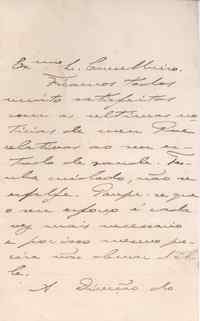 Ex.mo Sr. Conselheiro.
Ficamos todos
muito satisfeitos
com as ultimas no
ticias de meu Pae
relativas ao seu es
tado de saude. Te
nha cuidado, não se
Poupe-se que
o seu esforço é cada
vez mais necessario
e por isso mesmo pre
não
A Direcção do